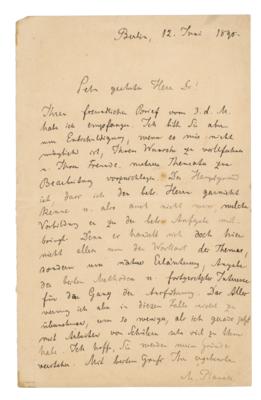 Berlin, 12. Juni 1890.
Sehr geehrter Herr Dr!
Ihren freundlichen Brief vom 3. d. M.
habe ich empfangen. Ich bitte Sie aber
um Entschuldigung, wenn es mir nicht
möglich ist, Ihren Wunsch zu
u. Ihrem Freunde, mehrere Themata zur
Bearbeitung vorzuschlagen. Der Hauptgrund
ist, dass ich den betr. Herrn garnicht
kenne u. also auch nicht weiss, welche
Vorbildung er zu der betr. Aufgabe mit-
bringt. Denn es handelt sich doch hier
nicht allein um den Wortlaut des Themas,
sondern um nähere Erläuterung, Angabe
der besten Methoden u. fortgesetztes Interesse
für den Gang der Ausführung. Das Alles
vermag ich aber in diesem Falle nicht zu
übernehmen, um so weniger, als ich gerade jetzt
mit Arbeiten von Schülern sehr viel zu thun
habe. Ich hoffe, Sie werden meine Gründe
verstehen. Mit bestem Gruss Ihr ergebenster
M. Planck.